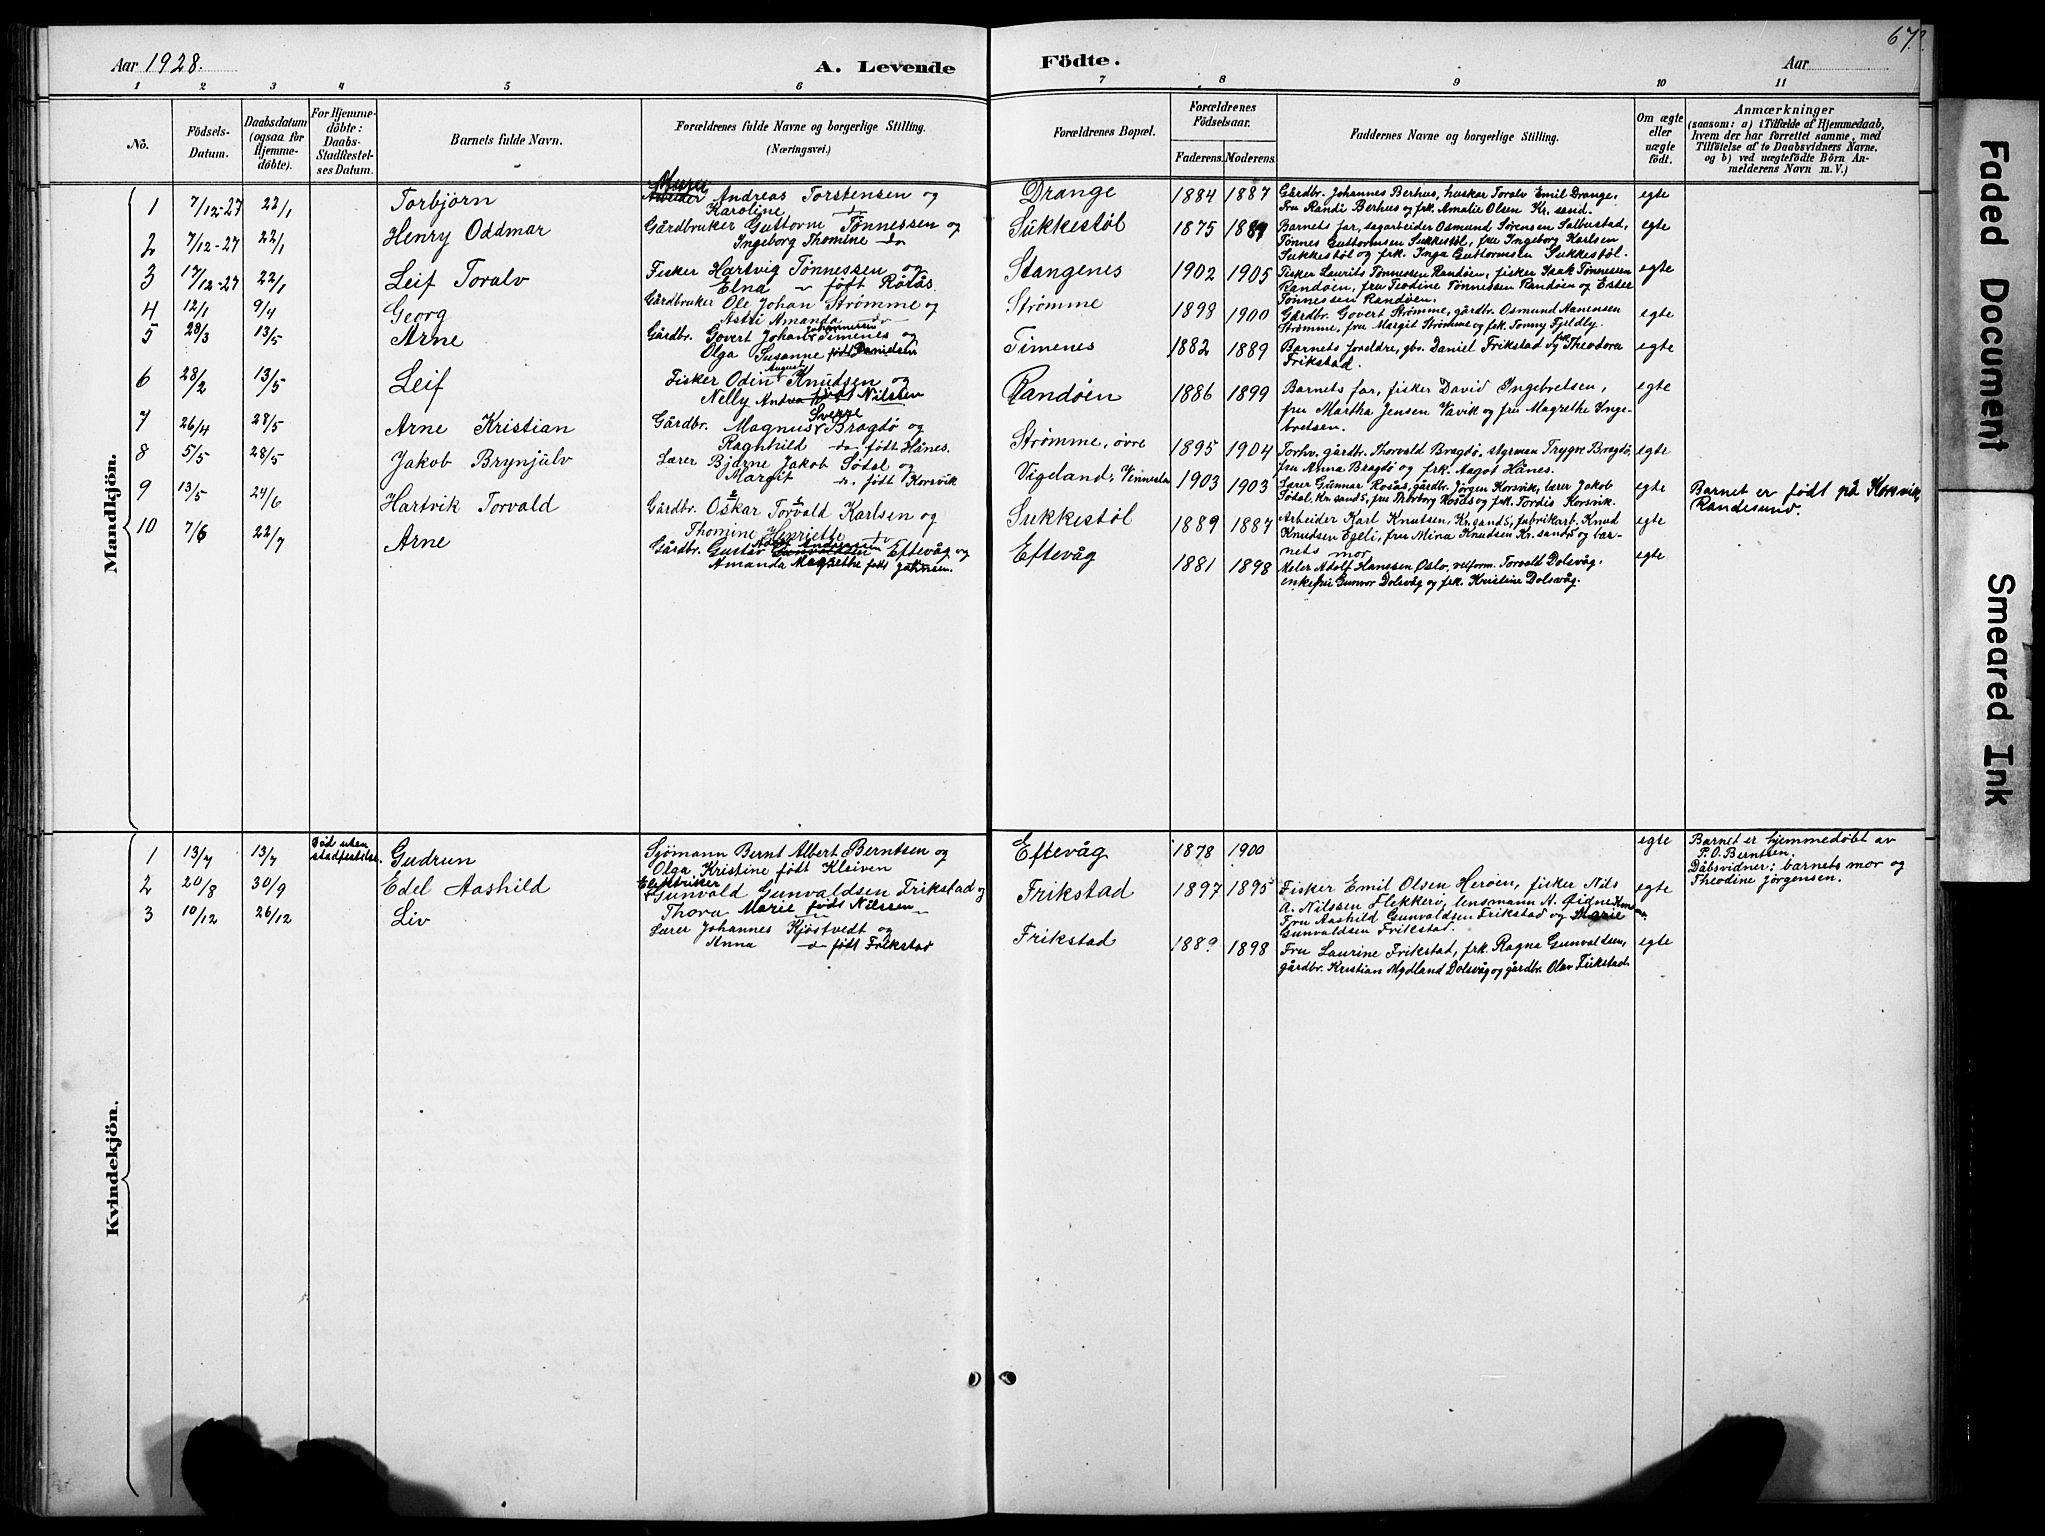 Aar 1928.
A. Levende
Födte.
Aar
67.
1 2 3 4 5 6 7 8 9 10 11
No.
Födsels-
Datum.
Daabsdatum
(ogsaa for
Hjemme-
döbte).
For Hjemme-
döbte:
Daabs-
Stadfæstel-
ses Datum.
Barnets fulde Navn.
Forældrenes fulde Navne og borgerlige Stilling.
(Næringsvei.)
Forældrenes Bopæl.
Forældrenes
Födselsaar.
Faderens. Moderens.
Faddernes Navne og borgerlige Stilling.
Om ægte
eller
uægte
födt.
Anmærkninger
(saasom: a) i Tilfælde af Hjemmedaab,
hvem der har forrettet samme, med
Tilföielse af to Daabsvidners Navne.
og b) ved uægtefödte Börn An-
melderens Navn m. V.)
Mandkjön.
1 7/12-27 22/1 Torbjörn
Murer
Arbeider Andreas Torstensen og
Karoline do
Drange 1884 1887
Gårdbr. Johannes Berhus, huskar Toralv Emil Drange,
Fru Randi Berhus og frk. Amalie Olsen Kr. sand.
egte
2 7/12-27 22/1 Henry Oddmar
Gårdbruker Guttorm Tönnessen og
Ingeborg Thomine do
Sukkestöl 1875 1889
Barnets far, sagarbeider Osmund Sörensen Salbustad,
Tönnes Guttormsen Sukkestöl, fru Ingeborg Karlsen
Sukkestöl og frk. Inga Guttormsen Sukkestöl.
egte
3 17/12-27 22/1 Leif Toralv
Fisker Hartvig Tönnessen og
Elna do født Rölås.
Stangenes 1902 1905
Fisker Laurits Tönnessen Randöen, fisker Isak Tönnessen
Randöen, fru Teodine Tönnessen Randöen og Ester
Tönnessen Randöen.
egte
4 12/1 9/4 Georg
Gårdbruker Ole Johan Strömme og
Astri Amanda do
Strömme 1898 1900
Gårdbr. Govert Strömme, gårdbr. Osmund Aanensen
Strömme, fru Margit Strömme og frk. Tonny Fjeldly.
egte
5 23/3 13/5 Arne
Gårdbr. Govert Johan Johannessen Timenes og
Olga Susanne født Danielsen
Timenes 1882 1889
Barnets foreldre, gbr. Daniel Frikstad og frk. Theodora
Frikstad.
egte
6 28/2 13/5 Leif
Fisker Odin August Knudsen og
Nelly Andrea født Nilsen
Randöen 1886 1899
Barnets far, fisker David Ingebretsen,
fru Martha Jensen Vavik og fru Magrethe Inge-
bretsen.
egte
7 26/4 28/5 Arne Kristian
Gårdbr. Magnus Sverre Bragdö og
Ragnhild do født Hånes.
Strömme, övre 1895 1904
Torhv. gårdbr. Thorvald Bragdö, styrman Trygve Bragdö,
fru Anna Bragdö og frk. Aagot Hånes.
egte
8 5/5 28/5 Jakob Brynjulv
Lærer Bjarne Jakob Södal og
Margit n. født Korsvik
Vigeland, Vennesla 1903 1903
Lærer Gunnar Rosås, gårdbr. Jörgen Korsvik, lærer Jakob
Södal, Kr. sand S, fru Thorborg Rosås og frk. Tordis Korsvik.
egte
Barnet er født på Korsvik,
Randesund.
9 13/5 24/6 Hartvik Torvald
Gårdbr. Oskar Torvald Karlsen og
Thomine Henriette do
Sukkestöl 1889 1887
Arbeider Karl Knutsen, Kr. sand S, fabrikarb. Knud
Knudsen Egeli, fru Mina Knudsen Kr. sand S og bar-
nets mor.
egte
10 7/6 22/7 Arne
Gårdbr. Gustav Gunvaldsen Eftevåg og
Amanda Magrethe født Johnsen.
Eftevåg 1881 1898
Maler Adolf Hanssen Oslo, Torvald Dolsvåg,
enkefru Gunvor Dolsvåg og frk. Kristine Dolsvåg.
egte
Kvindekjön.
1 13/7 13/7 Död uten
stadfestelse. Gudrun
Sjömann Bernt Albert Berntsen og
Olga Kristine født Kleiven
Eftevåg 1878 1900
egte
Barnet er hjemmedöbt av
P. O. Berntsen.
Dåbsvidner: barnets mor og
Theodine Jörgensen.
2 20/8 30/9 Edel Aashild
Elektriker
Gunvald Gunvaldsen Frikstad og
Thora Marie født Nilssen
Frikstad 1897 1895
Fisker Emil Olsen Heröen, fisker Nils
A. Nilssen Flekkerö, lensmann A.
Fru Aashild Gunvaldsen Frikstad og Marie
Gunvaldsen Frikstad.
egte
3 10/12 26/12 Liv
Lærer Johannes Kjöstvedt og
Anna do født Frikstad
Frikstad 1889 1898
Fru Laurine Frikstad, frk. Ragna Gunvaldsen,
gårdbr. Kristian Mydland Dolsvåg og gårdbr. Olav Frikstad.
egte
Faded Document
Smeared Ink